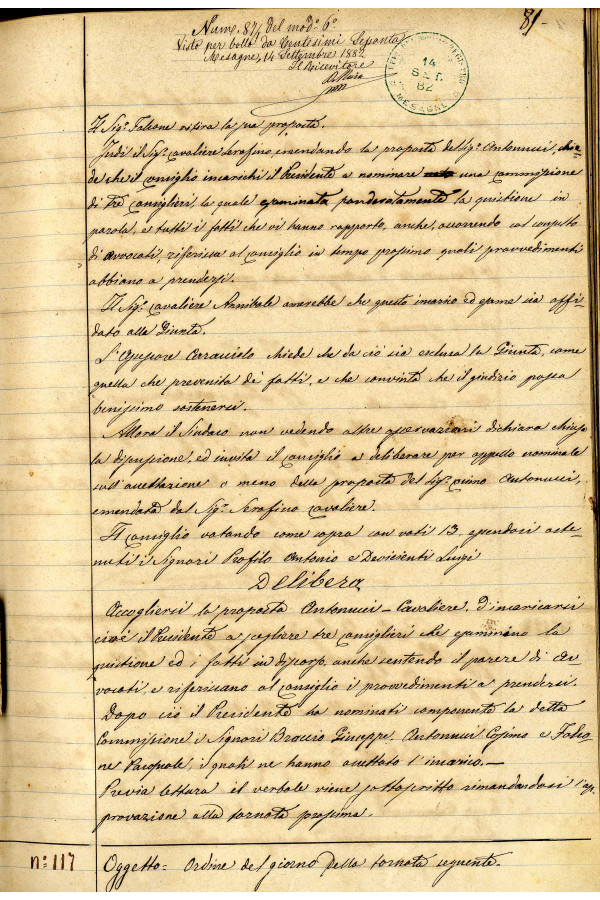 81-
Num. 871 del mod.º 6º
Visto per bollo da Centesimi Sessanta
Mesagne, 14 Settembre 1882
Il Ricevitore
14
SET.
82
MESAGNE
Il Sig.r Falcone ritira la sua proposta.
Indi il Sig.r Cavaliere Serafino, emendando la proposta del Sig.r Antonucci, chie-
de che il Consiglio incarichi il Presidente a nominare una commissione
di tre Consiglieri, la quale esaminata ponderatamente la quistione in
parola, e tutti i fatti che vi hanno rapporto, anche, occorrendo col consulto
di avvocati, riferisca al Consiglio in tempo prossimo quali provvedimenti
abbiano a prendersi.
Il Sig.r Cavaliere Annibale vorrebbe che questo incarico ed esame sia affi-
dato alla Giunta.
L'Assessore Caracciolo chiede che da ciò sia esclusa la Giunta, come
quella che prevenuta de' fatti, e che convinta che il giudizio possa
benissimo sostenersi.
Allora il Sindaco non vedendo altre osservazioni dichiara chiusa
la discussione, ed invita il Consiglio a deliberare per appello nominale
sull'accettazione o meno della proposta del Sig.r Antonucci,
emendata dal Sig.r Serafino Cavaliere.
Il Consiglio votando come sopra con voti 13, essendosi aste-
nuti i Signori Profilo Antonio e Devicienti Luigi
Delibera
Accogliersi la proposta Antonucci - Cavaliere, d'incaricarsi
cioè il Presidente a scegliere tre Consiglieri che esaminano la
quistione ed i fatti in discorso, anche sentendo il parere di av-
vocati, e riferiscano al Consiglio i provvedimenti a prendersi.
Dopo ciò il Presidente ha nominati componente la detta
Commissione i Signori Braccio Giuseppe, Antonucci Cosimo e Falco-
ne Pasquale, i quali ne hanno accettato l'incarico.-
Previa lettura il verbale viene sottoscritto rimandandosi l'ap-
provazione alla tornata prossima.
nº 117
Oggetto= Ordine del giorno della tornata seguente.